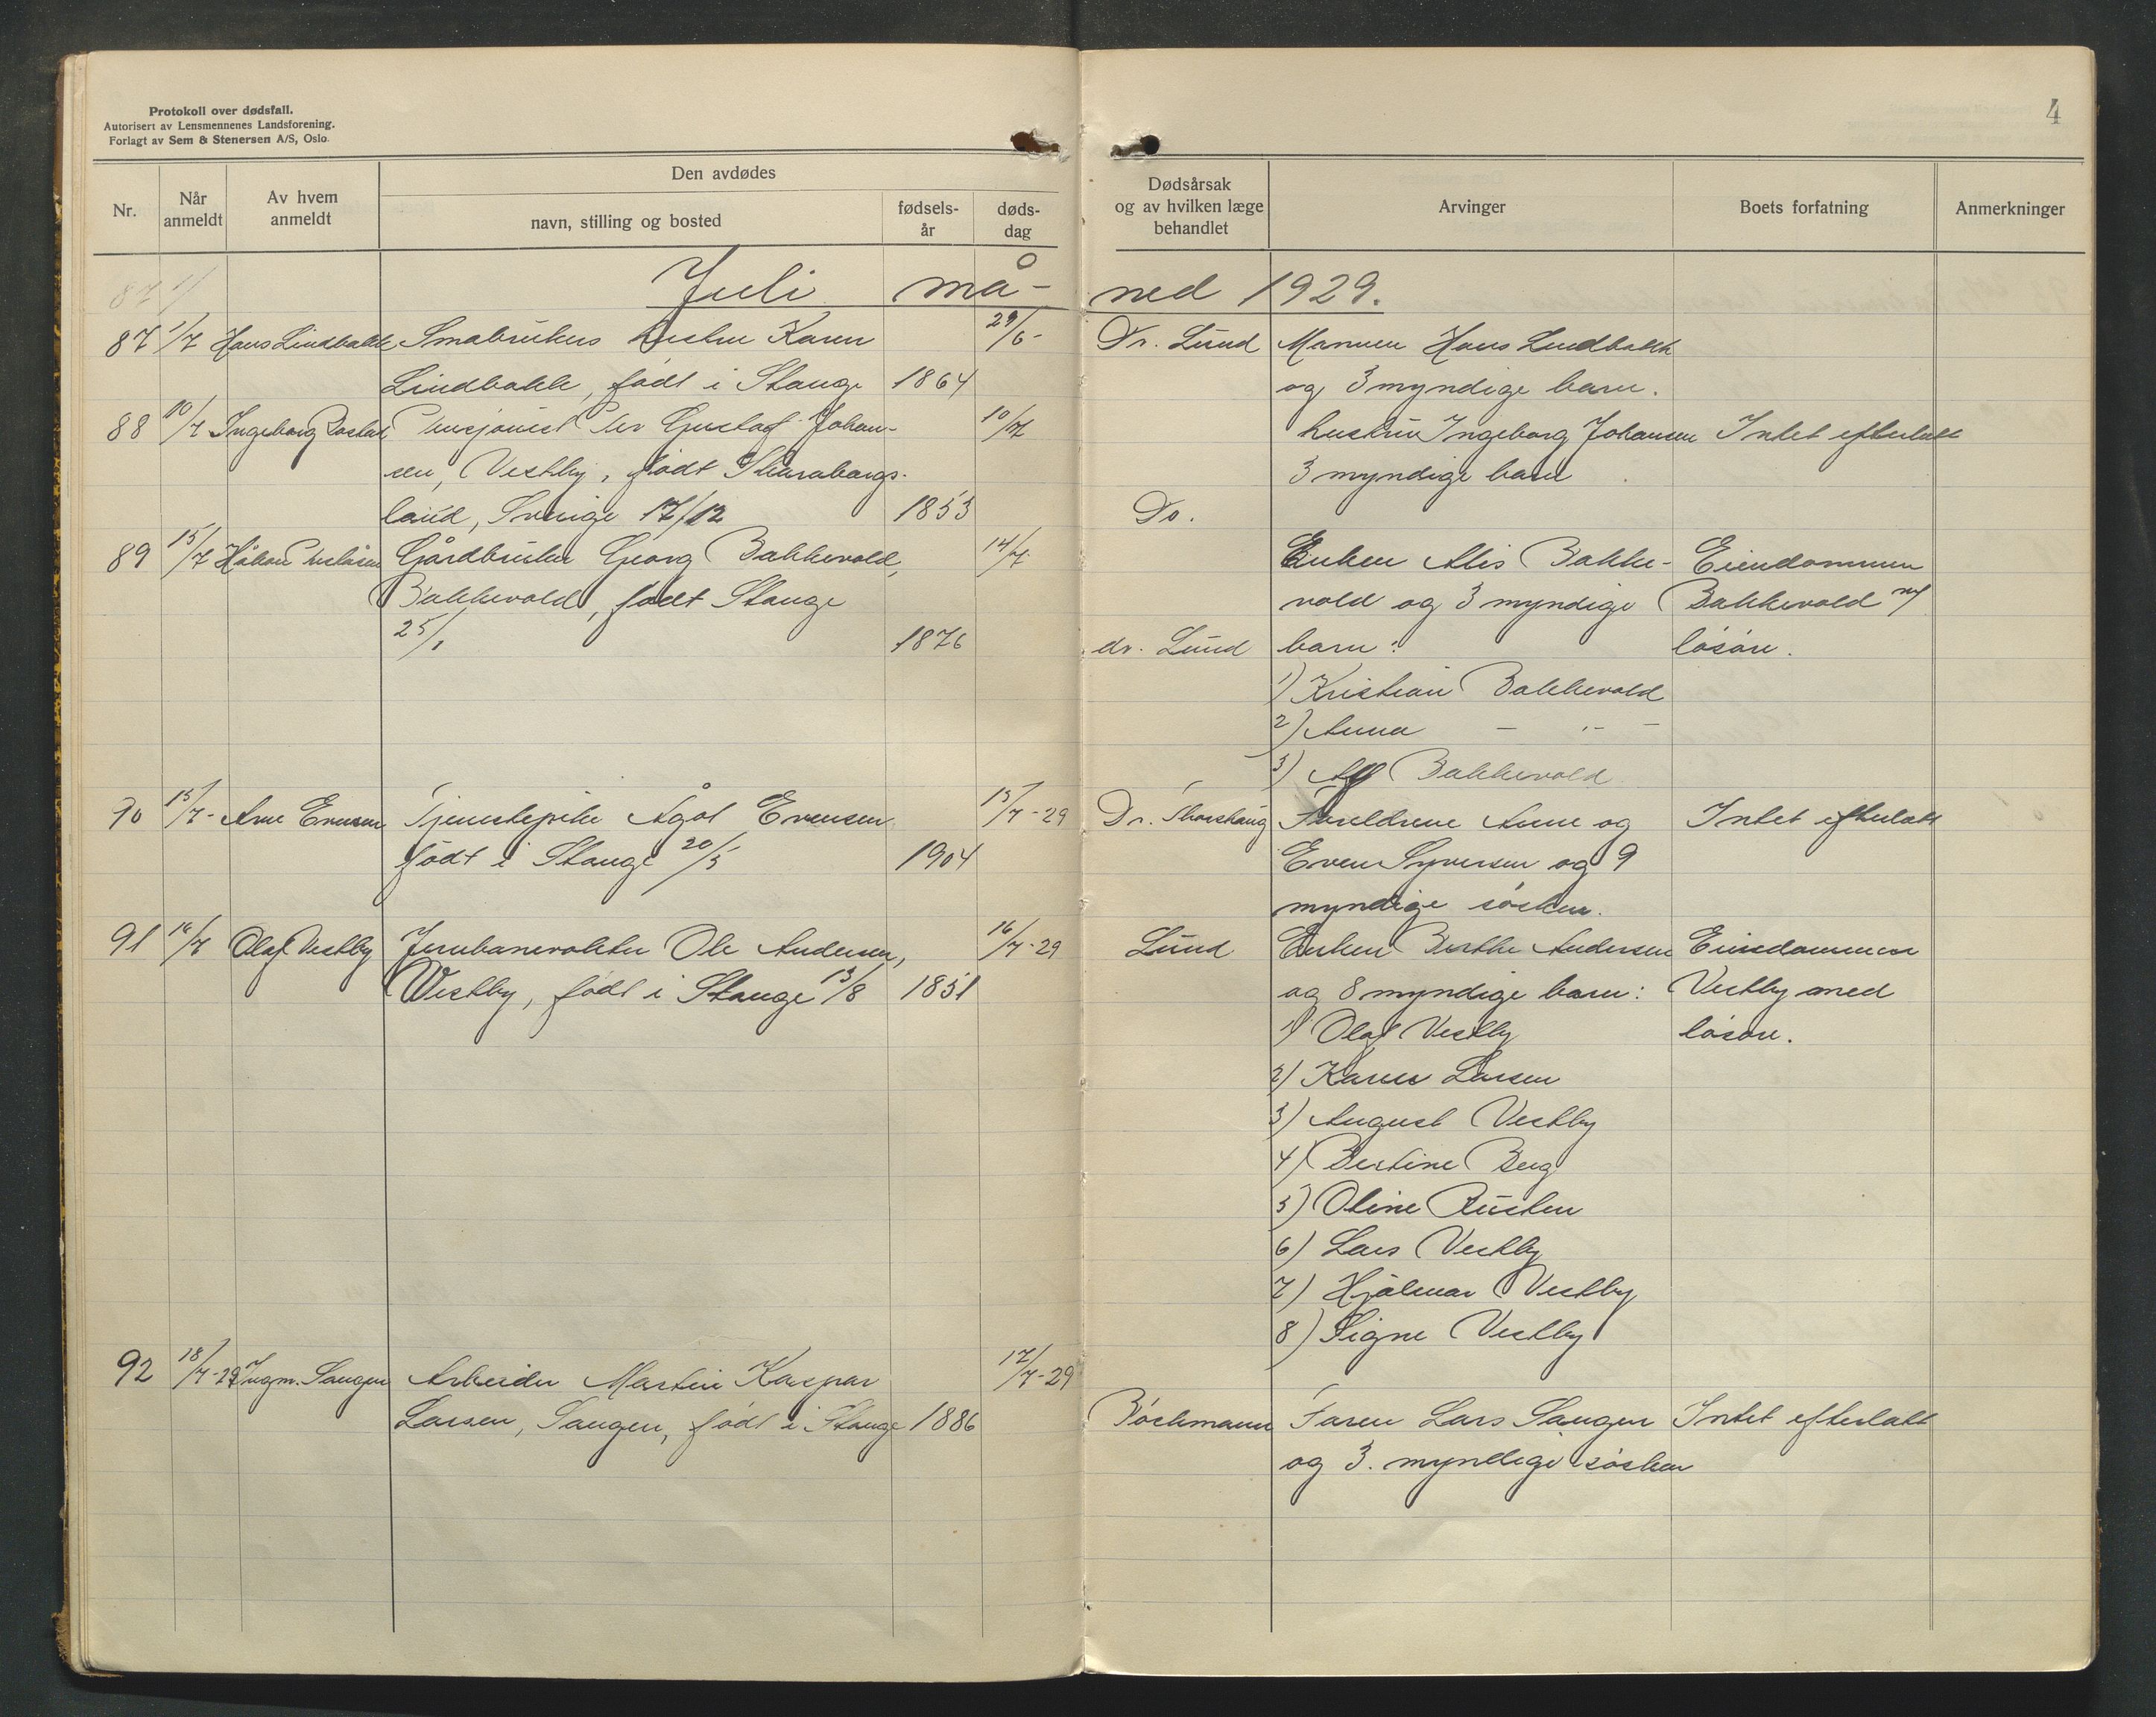 Protokoll over dødsfall.
Autorisert av Lensmennenes Landsforening.
Forlagt av Sem & Stenersen A/S, Oslo.
4
Nr.
Når anmeldt
Av hvem anmeldt
Den avdødes
navn, stilling og bosted
fødsels-år
døds-dag
Dødsårsak og av hvilken læge behandlet
Arvinger
Boets forfatning
Anmerkninger
Juli må- ned 1929.
87 1/7 Hans Lindbakk Småbrukers hustru Karen 29/6- Dr. Lund Mannen Hans Lindbakk
Lindbakk, født i Stange 1864 og 3 myndige barn.
88 10/7 Ingeborg Pensjonist Per Gustaf Johan- 10/7 hustru Ingeborg Johansen Intet efterlatt
sen, Vestby, født Skaraborgs- 3 myndige barn
land, Sverige 17/12 1853 Do.
89 15/7 Håkon Gårdbruker Georg Bakkevold, 14/7 Enken Alis Bakke- Eiendommen
Bakkevold, født Stange vold og 3 myndige Bakkevold m/
25/1 1876 dr. Lund barn: løsøre.
1) Kristian Bakkevold
2) Anna — " —
3) Alf Bakkevold
90 15/7- Arne Evensen Tjenestepike Ågot Evensen 15/7-29 Dr. Thorshaug Foreldrene Anne og Intet efterlatt
født i Stange 20/5 1904 Even Syversen og 9
myndige søsken.
91 16/7 Olaf Vestby Jernbanevokter Ole Andersen, 16/7-29 Lund Enken Berthe Andersen Eiendommen
Westby, født i Stange 13/8 1851 og 8 myndige barn: Vestby med
1) Olaf Vestby løsøre.
2) Karen Larsen
3) August Vestby
4) Bertine Berg
5) Oline Rusten
6) Lars Vestby
7) Hjalmar Vestby
8) Signe Vestby
92 18/7-29 Ingm. Saugen Arbeider Martin Kaspar 17/7-29
Larsen, Saugen, født i Stange 1886 Böckmann Faren Lars Saugen Intet efterlatt
og 3. myndige søsken